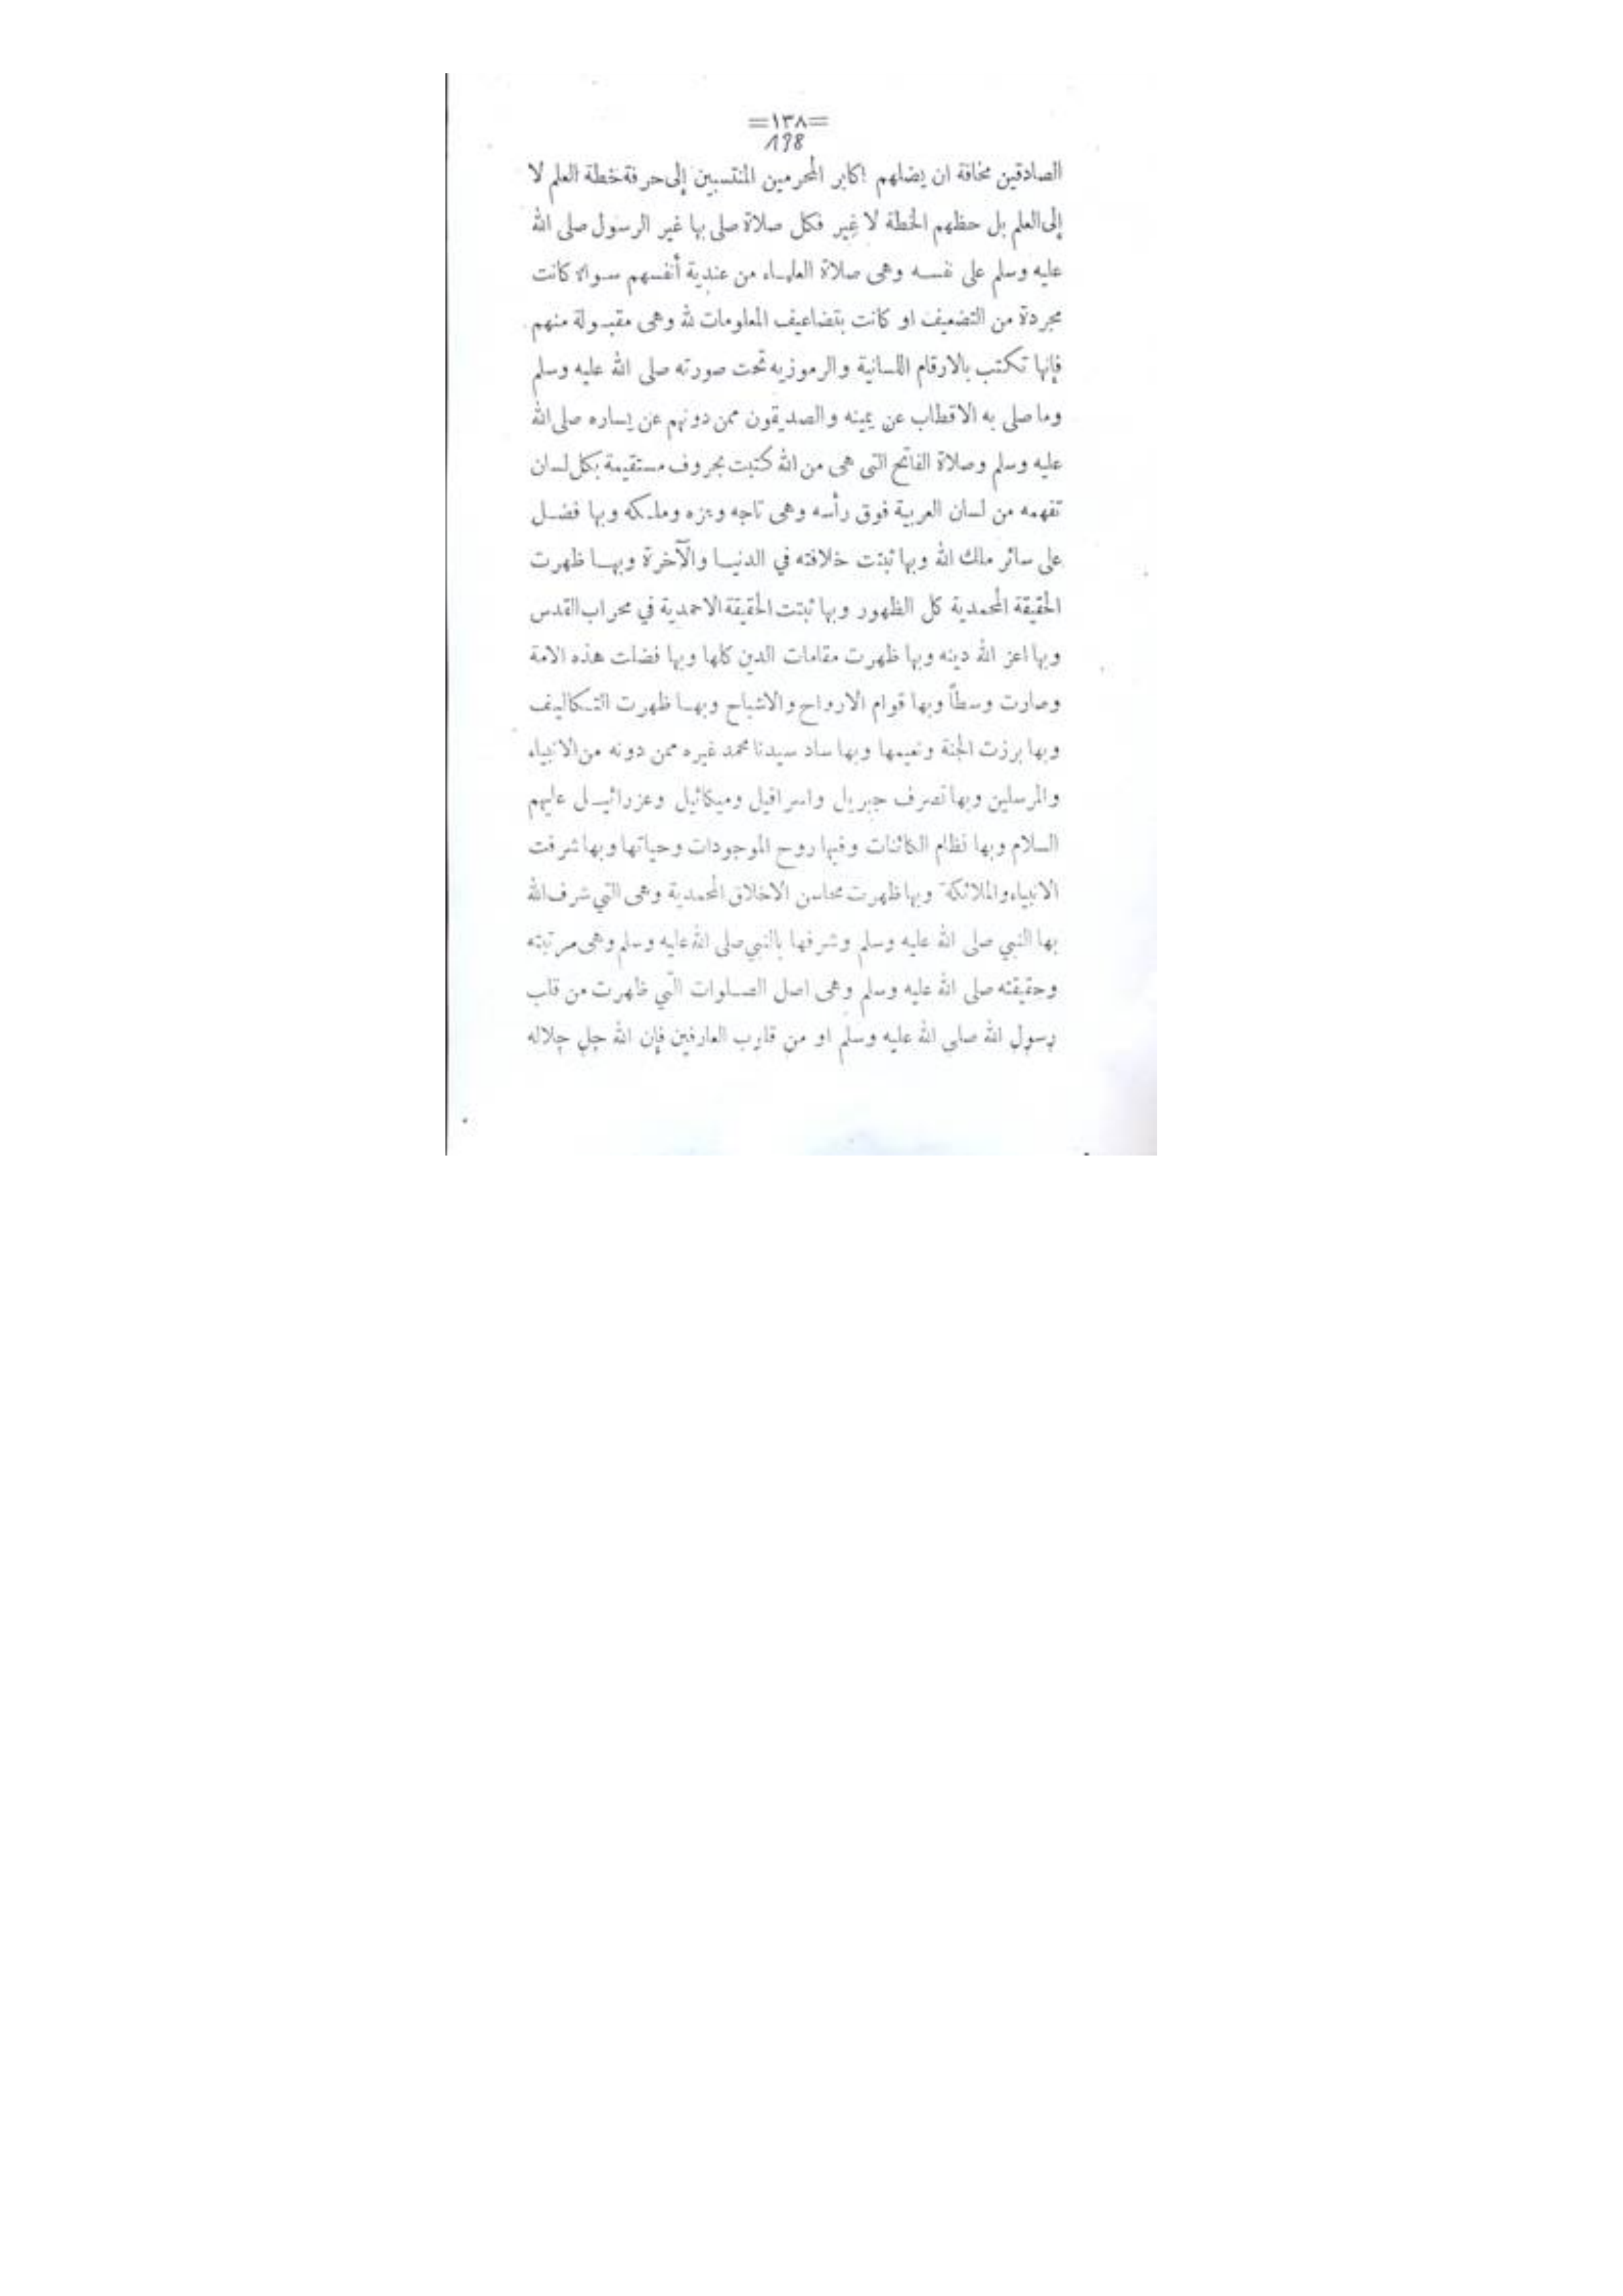 =١٣٨=
198
الصادقين مخافة ان يضلهم اكابر المحرمين المنتسبين إلى حرفة خطة العلم لا
إلى العلم بل حظهم الخطة لا غير فكل صلاة صلى بها غير الرسول صلى الله
عليه وسلم على نفسه وهى صلاة العلماء من عندية أنفسهم سواء كانت
مجردة من التضعيف او كانت بتضاعيف المعلومات لله وهى مقبولة منهم
فإنها تكتب بالارقام اللسانية والرموزيه تحت صورته صلى الله عليه وسلم
وما صلى به الاقطاب عن يمينه والصديقون ممن دونهم عن يساره صلى الله
عليه وسلم وصلاة الفاتح التى هى من الله كتبت بحروف مستقيمة بكل لسان
تفهمه من لسان العربية فوق رأسه وهى تاجه وعزه وملكه وبها فضل
على سائر ملك الله وبها ثبتت خلافته في الدنيا والآخرة وبها ظهرت
الحقيقة المحمدية كل الظهور وبها ثبتت الحقيقة الاحمدية في محراب القدس
وبها اعز الله دينه وبها ظهرت مقامات الدين كلها وبها فضلت هذه الامة
وصارت وسطاً وبها قوام الارواح والاشباح وبها ظهرت التكاليف
وبها برزت الجنة ونعيمها وبها ساد سيدنا محمد غيره ممن دونه من الانبياء
والمرسلين وبها تصرف جبريل واسرافيل وميكائيل وعزرائيل عليهم
السلام وبها نظام الكائنات وفيها روح الموجودات وحياتها وبها شرفت
الانبياء والملائكة وبها ظهرت محاسن الاخلاق المحمدية وهى التي شرف الله
بها النبي صلى الله عليه وسلم وشرفها بالنبي صلى الله عليه وسلم وهى مرتبته
وحقيقته صلى الله عليه وسلم وهى اصل الصلوات التي ظهرت من قلب
رسول الله صلى الله عليه وسلم او من قلوب العارفين فإن الله جل جلاله